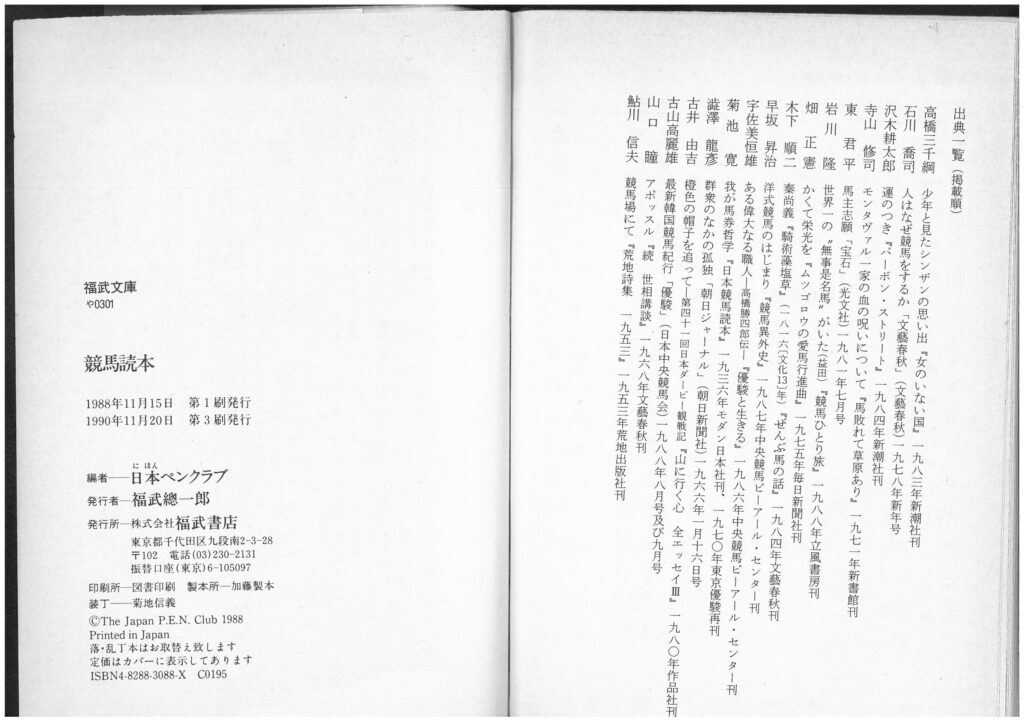 出典一覧（掲載順）
高橋三千綱　少年と見たシンザンの思い出『女のいない国』一九八三年新潮社刊
石川　喬司　人はなぜ競馬をするか「文藝春秋」（文藝春秋）一九七八年新年号
沢木耕太郎　運のつき『バーボン・ストリート』一九八四年新潮社刊
寺山　修司　モンタヴァル一家の血の呪いについて『馬敗れて草原あり』一九七一年新書館刊
東　君平　馬主志願「宝石」（光文社）一九八一年七月号
岩川　隆　世界一の〝無事是名馬〟がいた（益田）『競馬ひとり旅』一九八八年立風書房刊
畑　正憲　かくて栄光を『ムツゴロウの愛馬行進曲』一九七五年毎日新聞社刊
木下　順二　秦尚義『騎術藻塩草』（一八一六〔文化13〕年）『ぜんぶ馬の話』一九八四年文藝春秋刊
早坂　昇治　洋式競馬のはじまり『競馬異外史』一九八七年中央競馬ピーアール・センター刊
宇佐美恒雄　ある偉大なる職人―高橋勝四郎伝―『優駿と生きる』一九八六年中央競馬ピーアール・センター刊
菊池　寛　我が馬券哲学『日本競馬読本』一九三六年モダン日本社刊、一九七〇年東京優駿再刊
澁澤　龍彥　群衆のなかの孤独「朝日ジャーナル」（朝日新聞社）一九六六年一月十六日号
古井　由吉　橙色の帽子を追って―第四十一回日本ダービー観戦記『山に行く心　全エッセイⅢ』一九八〇年作品社刊
古山高麗雄　最新韓国競馬紀行「優駿」（日本中央競馬会）一九八八年八月号及び九月号
山口　瞳　アポッスル『続　世相講談』一九六八年文藝春秋刊
鮎川　信夫　競馬場にて『荒地詩集　一九五三』一九五三年荒地出版社刊
福武文庫
や0301
競馬読本
1988年11月15日　第1刷発行
1990年11月20日　第3刷発行
にほん
編者――日本ペンクラブ
発行者―福武總一郎
発行所―株式会社福武書店
東京都千代田区九段南2-3-28
〒102　電話(03)230-2131
振替口座(東京)6-105097
印刷所―図書印刷　製本所―加藤製本
装丁――菊地信義
©The Japan P.E.N. Club 1988
Printed in Japan
落・乱丁本はお取替え致します
定価はカバーに表示してあります
ISBN4-8288-3088-X　C0195